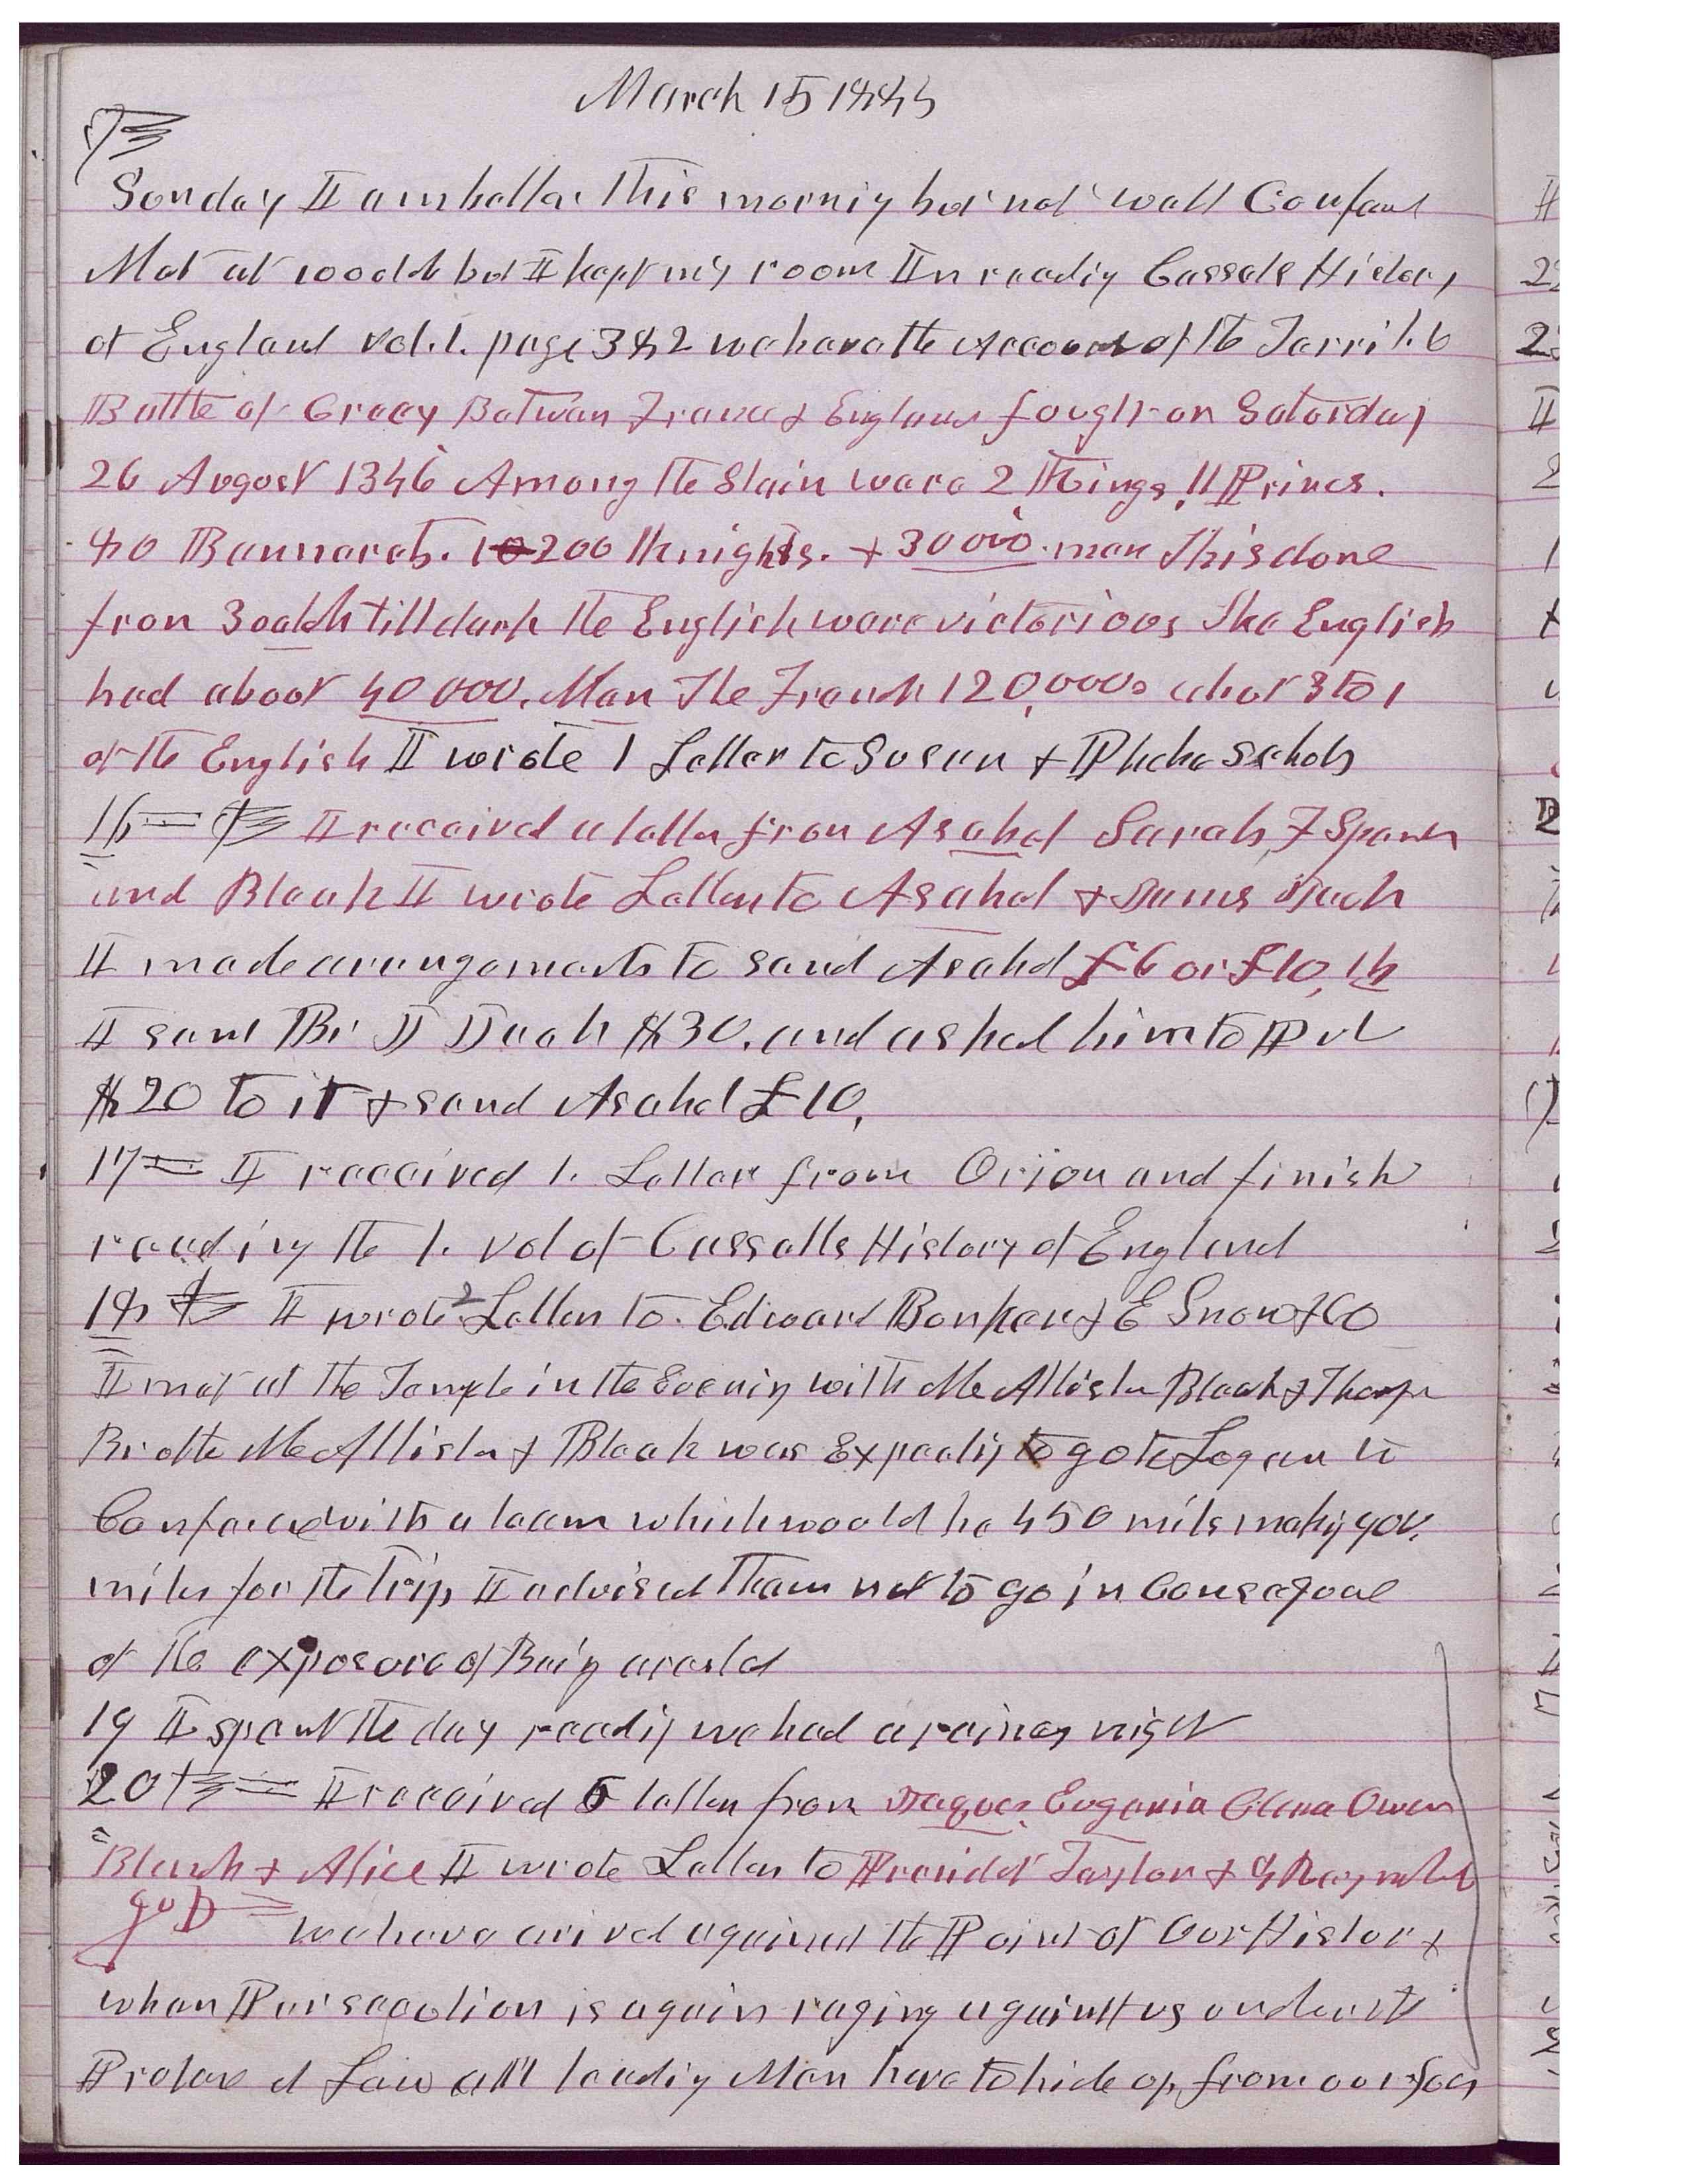 March 15 1885
Sunday I am better this morning but not well Confer
Met at 10 oclok but I kept my room In reading Cassels History
of England vol. 1. page 382 we have the Account of the Terrible
Battle of Crecy Between France & England fought on Saturday
26 August 1346 Among the Slain ware 2 Kings, 11 Princes.
80 Bannarets. 1200 Knights. & 30000. men This done
from 3 oclok till dark the English ware victorious The English
had about 40000. Men The French 120,000. about 3 to 1
of the English I wrote 1 Letter to Susan & Phebe Scholes
16 I received a letter from Asahel Sarah,
and Bleak I wrote Letters to Asahel & James Jack
I made arangements to send Asahel £6 or £10,
I sent Br Jack $30. and asked him to Put
$20 to it & send Asahel £10,
17 I received 1. Letter from Orion and finish
reading the 1. vol of Cassells History of England
18 I wrote 2 Letters to Edward Bunker & E Snow & Co
I met at the Temple in the Evening with McAllister Bleak & Thomp
Brother McAllister & Bleak was Expecting to go to Logan to
Conference with a team which would be 450 miles making 900.
miles for the trip I advised them not to go in Consequence
of the exposure of Being arested
19 I spent the day reading we had a rainey night
20 I received 5 letters from Jaques, Eugenia Clara Owen
Blanch & Alice I wrote Letters to President Taylor & G Reynolds
we have arived again at the Point of Our History
when Persecution is again raging against us under the
Pretence of Law all leading Men have to hide up from our foes